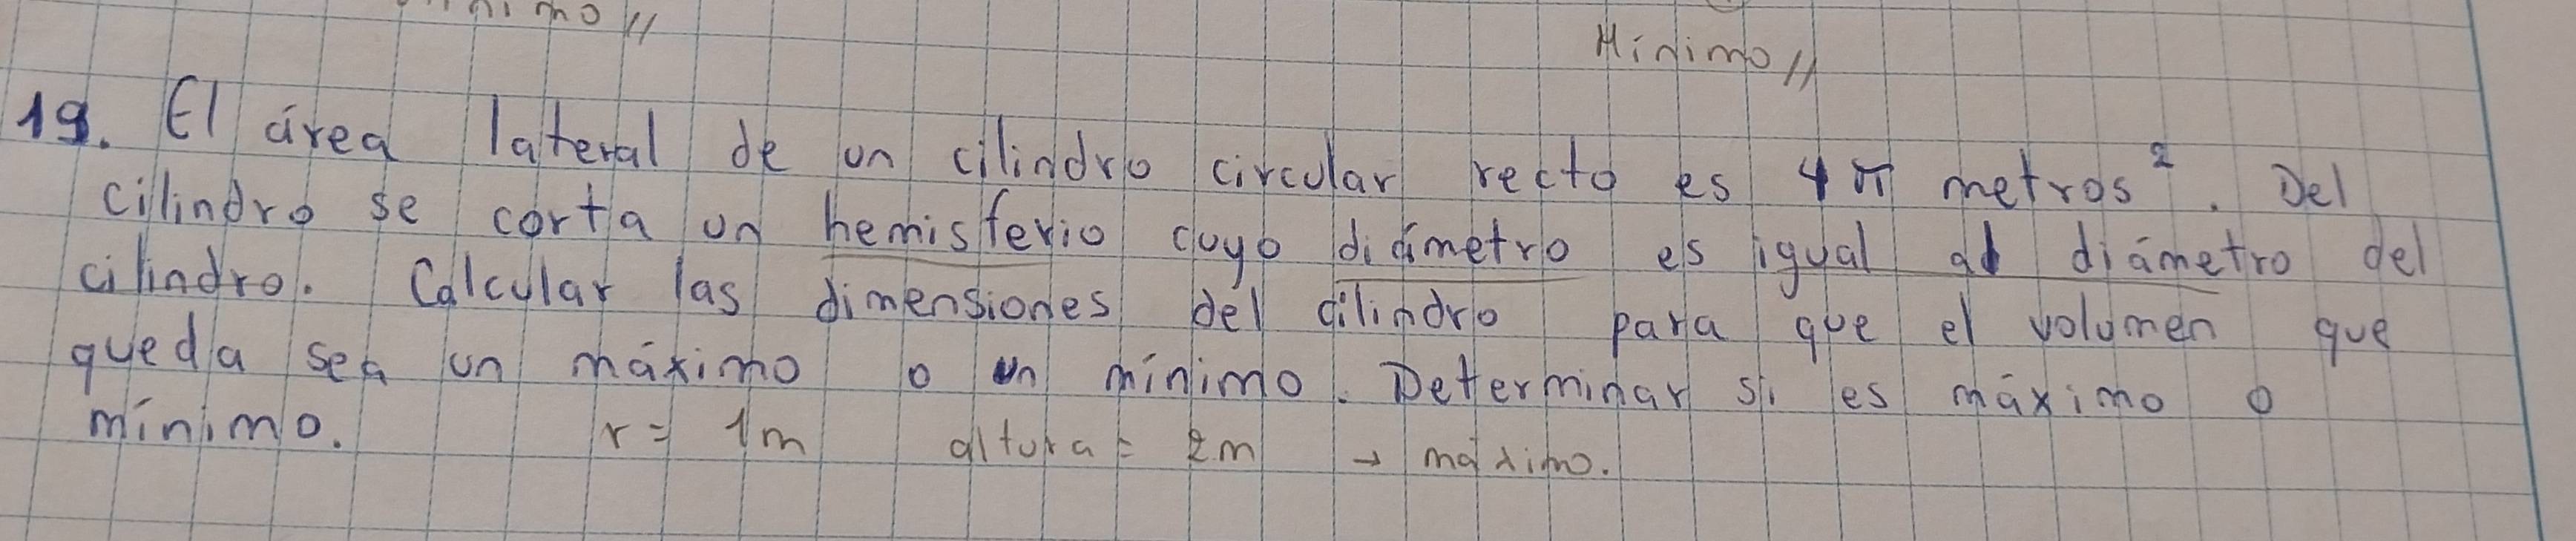 Mínimo//
19. El área lateral de un cilindro circular recto es 4π metros². Del
cilindro se corta un hemisferio cuyo diámetro es igual al diámetro del
cilindro. Calcular las dimensiones del cilindro para que el volumen que
queda sea un máximo o un mínimo. Determinar si es máximo o
mínimo. r = 1m altura = 2m → máximo.